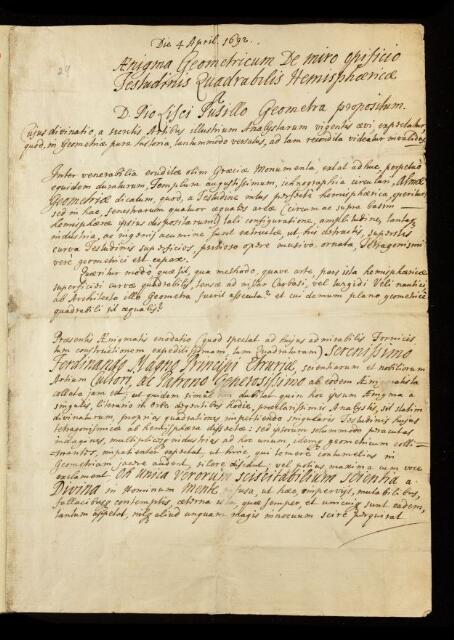 Die 4 April. 1692.
29
Ænigma Geometricum De miro opificio
Testudinis Quadrabilis Hemisphæricæ
A
D. Pio Lisci Pusillo Geometra propositum.
Cujus divinatio, a secretis Artibus illustrium Analystarum vigentis ævi expectatur,
quod, in Geometriæ puræ historia, tantummodo versatus, ad tam recondita videatur invalidus.
Inter venerabilia eruditæ olim Græciæ Monumenta, extat adhuc, perpetuo
equidem duraturum, Templum augustissimum, ichnographia circulari, Almæ
Geometriæ dicatum, quod, a Testudine intus perfecte hemisphærica, operitur;
sed in hac, fenestrarum quatuor æquales areæ (circum ac supra basim
hemisphæræ ipsius dispositarum) tali configuratione, amplitudine, tantaque
industria, ac ingenij acumine sunt extructæ, ut his detractis, superstes
curva Testudinis superficies, pretioso opere musivo ornata, Tetragonismi
vere geometrici est capax.
Quæritur modo, quæ sit, qua methodo, quave arte, pars ista hemisphæricæ
superficiei curvæ quadrabilis, tensæ ad instar Carbasi, vel turgidi Veli nautici
ab Architecto illo Geometra fuerit assecuta? et cui demum plano geometrice
quadrabili sit æqualis?
Præsentis Ænigmatis enodatio (quod spectat ad hujus admirabilis Fornicis,
tum constructionem expeditissimam, tum Quadraturam) Serenissimo
Ferdinando Magno Principi Etruriæ, scientiarum et nobilium
Artium Cultori, ac Patrono Generosissimo ab eodem Ænigmatista
oblata jam est, ut eundem simul non dubitat quin hoc ipsum Ænigma a
singulis, literario in Orbe degentibus hodie, præclarissimis Analystis, sit statim
divinaturum, proprias quadraturas impertiendo singularis Testudinis hujus
tetragonismicæ ab hemisphæra dissectæ: sed ipsorum solummodo peracutas
indagines, multiplices industrias ad hoc unum, idemq geometricum colli-
mantes, impatienter expectat, ut hinc, qui temere contumelijs in
Geometriam sævire audent, silere discant: vel potius maxima cum voce
exclament Oh unica Verorum scibilium Scientia a
Divina in Hominum Mente infusa, ut hæc impervijs, mutabilibus,
fallacibusq contemptis, æterna ista, quæ semper, et unicuiq sunt eadem,
tantum appetat, nilq aliud unquam magis innocuum scire perquirat.